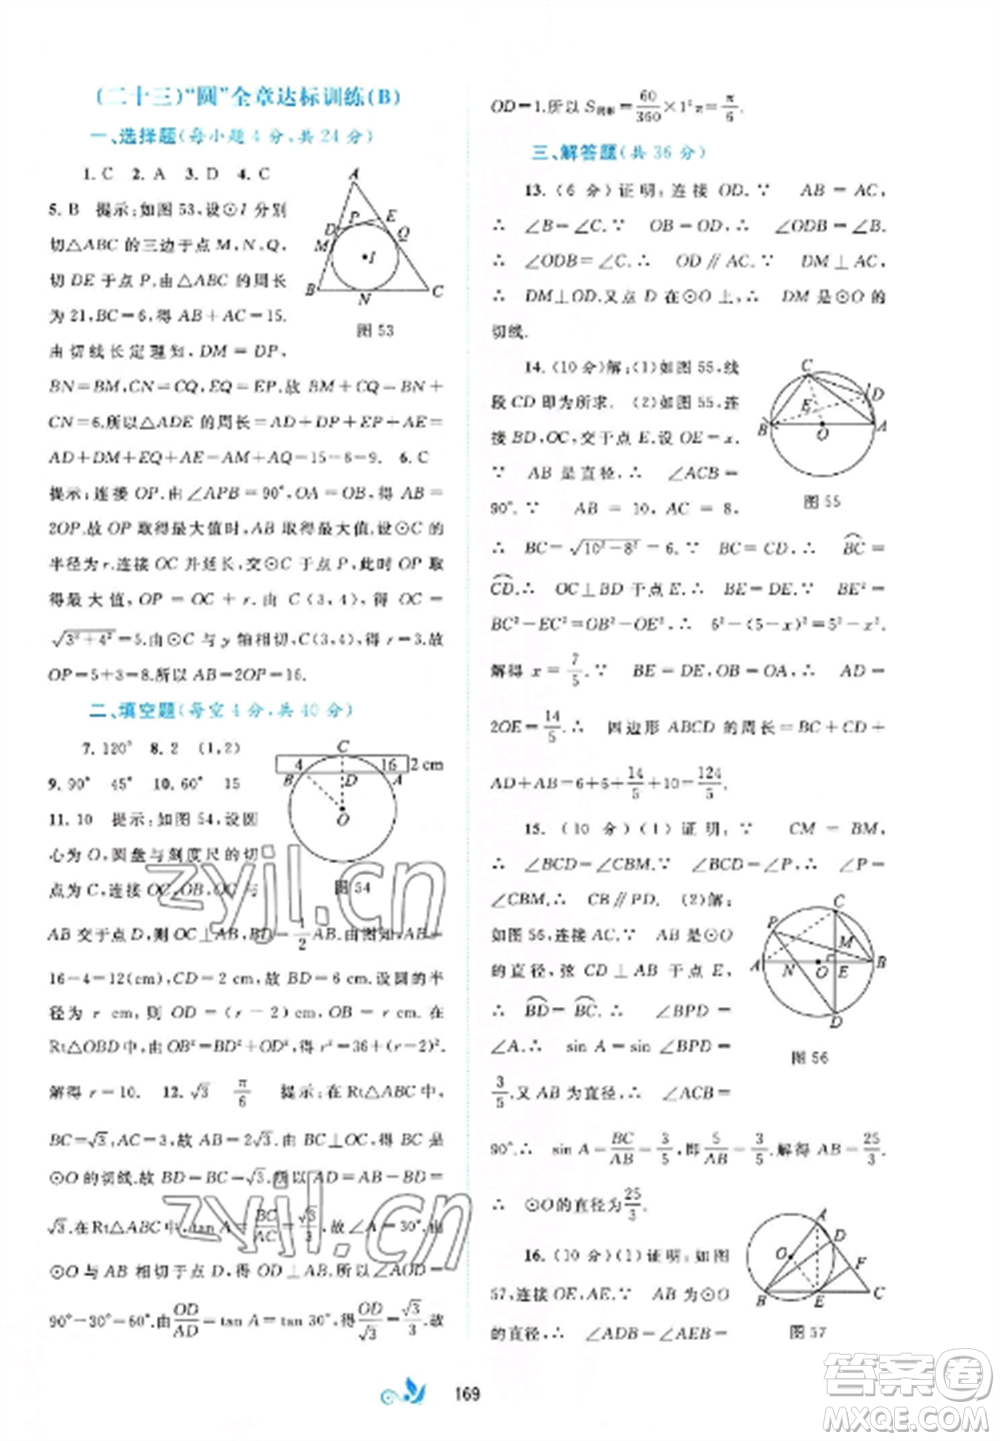 (二十三)“圆”全章达标训练(B)
一、选择题(每小题 4 分,共 24 分)
1. C 2. A 3. D 4. C
5. B 提示:如图 53,设⊙I 分别
切△ABC 的三边于点 M、N、Q,
切 DE 于点 P,∵△ABC 的周长
为 21,BC=6,∴ AB+AC=15.
由切线长定理知,DM=DP,
BN=BM,CN=CQ,EQ=EP.故 BM+CQ=
BC=6.所以△ADE 的周长=AD+DP+EP+AE=
AD+DM+AE+EQ=AB+AC-BC=15-6=9. 6. C
提示:连接 OP.由∠APB=90°,OA=OB,得 AB=
2OP.故 OP 取得最大值时,AB 取得最大值.设⊙C 的
半径为 r.连接 OC 并延长,交⊙C 于点 P,此时 OP 取
得最大值,OP=OC+r.由 C(3,4),得 OC=
√(3²+4²)=5.由⊙C 与 y 轴相切,C(3,4),得 r=3.故
OP=5+3=8.所以 AB=2OP=16.
A
D P E
M Q
I
B N C
图 53
二、填空题(每空 4 分,共 40 分)
7. 120° 8. 2 (1,2)
9. 90° 45° 10. 60° 15
11. 10 提示:如图 54,设圆
心为 O,圆盘与刻度尺的切
点为 C,连接 OC,OB,OC 与
C
4 16 2 cm
B D A
O
图 54
AB 交于点 D,则 OC⊥AB,BD=1/2 AB.由 AB=
16-4=12(cm),CD=2 cm.故 BD=6 cm.设圆的半
径为 r cm,则 OD=(r-2)cm.在
Rt△OBD 中,由 OB²=BD²+OD²,得 r²=6²+(r-2)².
解得 r=10. 12. √3 π/6 提示:在 Rt△ABC 中,
BC=√3,AC=3,故 AB=2√3.由 BC⊥OC,得 BC 是
⊙O 的切线.故 BD=BC=√3.所以 AD=AB-BD=
√3.在 Rt△ABC 中,tan A=BC/AC=√3/3,故∠A=30°.由
⊙O 与 AB 相切于点 D,得 OD⊥AB.所以∠AOD=
90°-30°=60°.由OD/AD=tan A=tan 30°,得OD/√3=√3/3.故
OD=1.所以 S扇形=60/360×1²π=π/6.
三、解答题(共 36 分)
13. (6 分)证明:连接 OD.∵ AB=AC,
∴ ∠B=∠C.∵ OB=OD,∴ ∠ODB=∠B.
∴ ∠ODB=∠C.∴ OD∥AC.∵ DM⊥AC,
∴ DM⊥OD.又点 D 在⊙O 上,∴ DM 是⊙O 的
切线.
14. (10 分)解:(1)如图 55,线
段 CD 即为所求. (2)如图 55,连
接 BD,OC,交于点 E.设 OE=x.
∵ AB 是直径,∴ ∠ACB=
90°.∵ AB = 10, AC = 8,
C D
E
B O A
图 55
∴ BC=√(10²-8²)=6.∵ BC=CD,∴ BC=
CD.∴ OC⊥BD 于点 E.∴ BE=DE.∵ BE²=
BC²-EC²=OB²-OE²,∴ 6²-(5-x)²=5²-x².
解得 x=7/5.∵ BE=DE,BO=OA,∴ AD=
2OE=14/5.∴ 四边形 ABCD 的周长=BC+CD+
AD+AB=6+6+14/5+10=124/5.
15. (10 分)(1)证明:∵ CM=BM,
∴ ∠BCD=∠CBM.∵ ∠BCD=∠P,∴ ∠P=
∠CBM. ∴ CB∥PD. (2)解:
如图 56,连接 AC.∵ AB 是⊙O
的直径,弦 CD⊥AB 于点 E,
∴ BD=BC.∴ ∠BPD=
∠A.∴ sin A=sin ∠BPD=
3/5.又 AB 为直径,∴ ∠ACB=
C
P M
A N O E B
D
图 56
90°.∴ sin A=BC/AB=3/5,即5/AB=3/5.解得 AB=25/3.
∴ ⊙O 的直径为25/3.
16. (10 分)(1)证明:如图
57,连接 OE,AE.∵ AB 为⊙O
的直径,∴ ∠ADB=∠AEB=
A
D
O F
B E C
图 57
169
zyjl.cn
zyjl.cn
答案圈
MXQE.COM